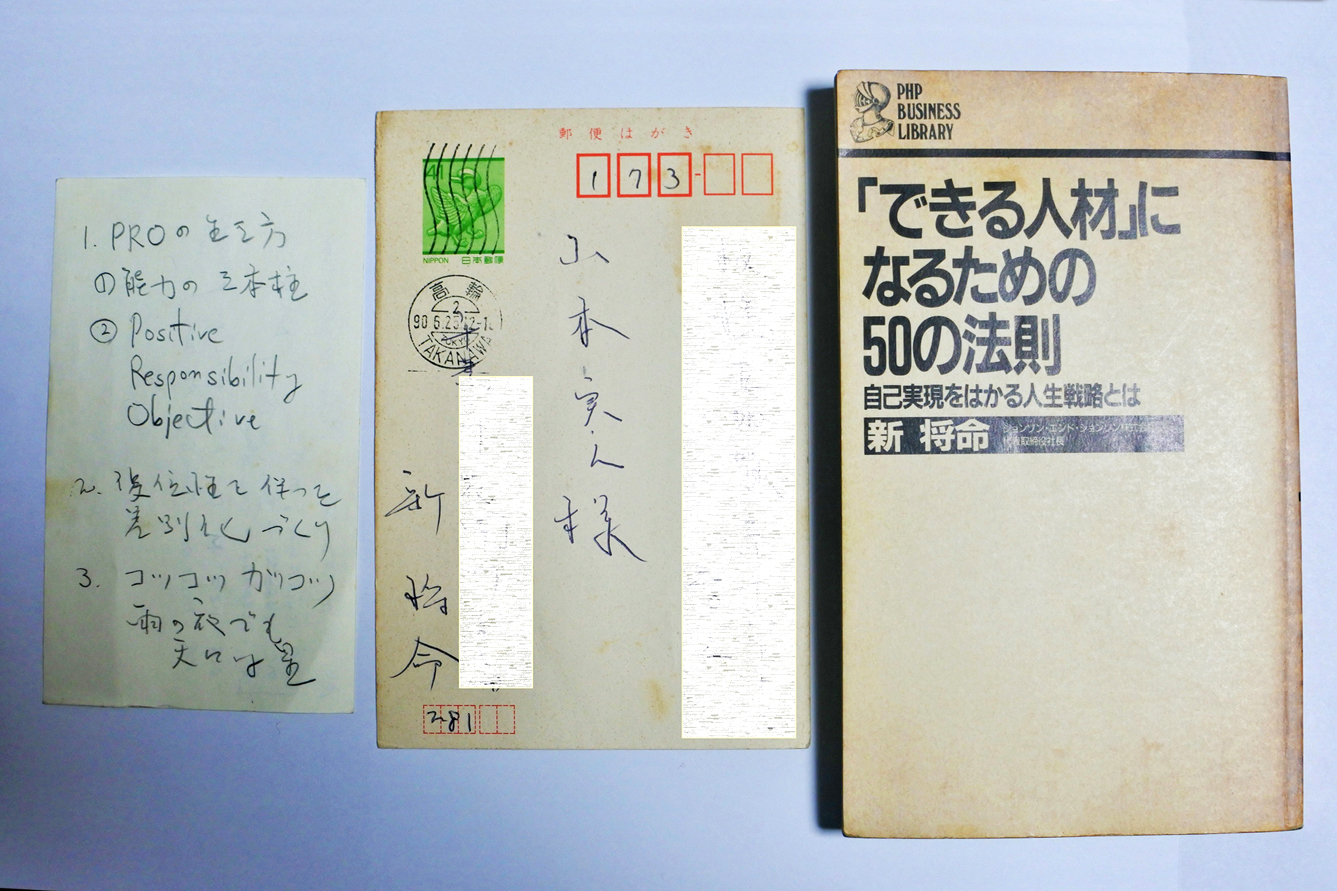 1. PROの生き方
の能力の三本柱
② Positive
Responsibility
Objective
2. 優位性を伴った
差別化づくり
3. コツコツカツコツ
雨の夜でも
天には星
郵便はがき
173
41
NIPPON 日本郵便
高輪
2
90.6.25
TAKANAWA
山本実之様
新将命
281
PHP
BUSINESS
LIBRARY
「できる人材」に
なるための
50の法則
自己実現をはかる人生戦略とは
新 将命
ジョンソン・エンド・ジョンソン株式会社
代表取締役社長